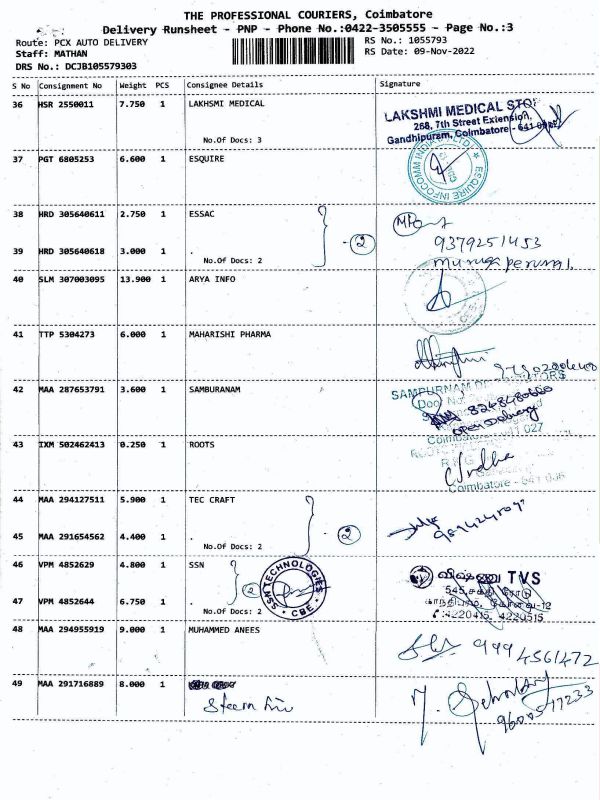 THE PROFESSIONAL COURIERS, Coimbatore
Delivery Runsheet - PNP - Phone No.:0422-3505555 - Page No.:3
Route: PCX AUTO DELIVERY
RS No.: 1055793
Staff: MATHAN
RS Date: 09-Nov-2022
DRS No.: DCJB105579303
S No Consignment No Weight PCS Consignee Details Signature
36 HSR 2550011 7.750 1 LAKHSMI MEDICAL
No.Of Docs: 3
LAKSHMI MEDICAL
268, 7th Street Extension,
Gandhipuram, Coimbatore - 641
37 PGT 6805253 6.600 1 ESQUIRE
ESQUIRE INFOCOMM INDIA
38 HRD 305640611 2.750 1 ESSAC
39 HRD 305640618 3.000 1 .
No.Of Docs: 2
2
9379251453
murugaperumal
40 SLM 307003095 13.900 1 ARYA INFO
41 TTP 5304273 6.000 1 MAHARISHI PHARMA
42 MAA 287653791 3.600 1 SAMBURANAM
SAMPURNAM
Door No.
027
43 IXM 502462413 0.250 1 ROOTS
Coimbatore - 641
44 MAA 294127511 5.900 1 TEC CRAFT
45 MAA 291654562 4.400 1 .
No.Of Docs: 2
2
46 VPM 4852629 4.800 1 SSN
47 VPM 4852644 6.750 1 .
No.Of Docs: 2
2
SSN TECHNOLOGIES
CBE
விஷ்ணு TVS
545, சக்தி ரோடு
காந்திபுரம், கோவை-12
4220415, 4220515
48 MAA 294955919 9.000 1 MUHAMMED ANEES
9994561472
49 MAA 291716889 8.000 1
9600517233